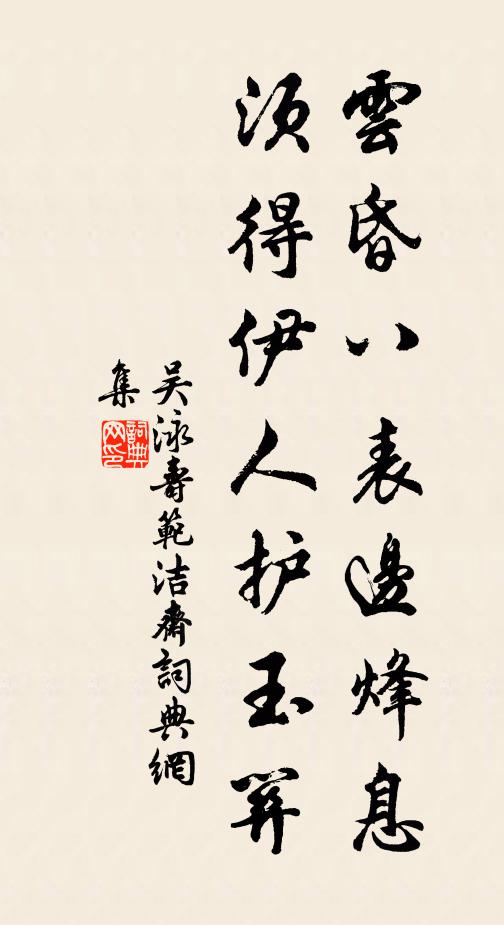 雲昏八表邊烽息
须得伊人护玉關
吴泳壽範洁齋詞典網
集
詞典
网印